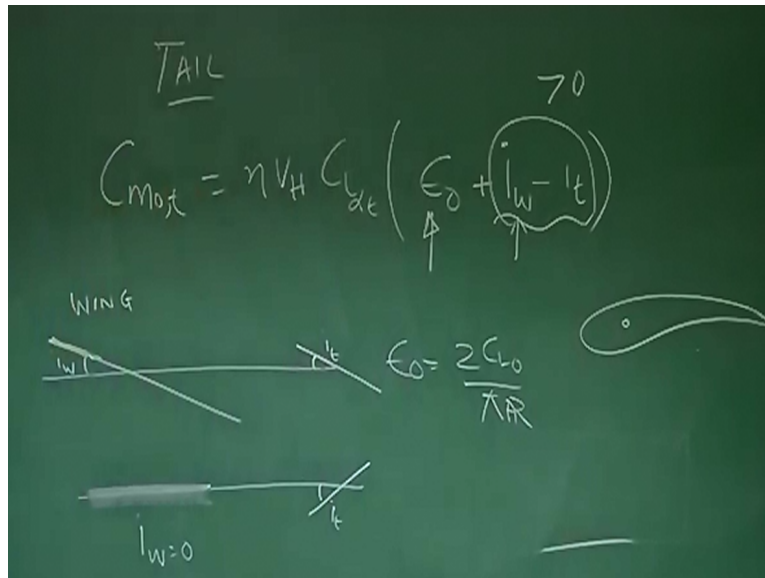 TAIL
>0
Cm0,t = η VH CLαt ( ϵ0 + iw - it )
WING
iw
it
ϵ0 = 2CL0 / πAR
it
iw=0